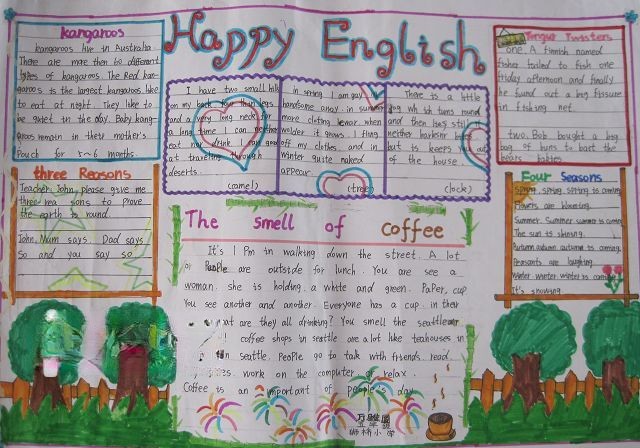 Happy English
kangaroos
kangaroos live in Australia.
There are more then 60 different
types of kangaroos. The Red kan-
garoos is the largest kangaroos. like
to eat at night. They like to
be quiet in the day. Baby kang-
aroos remain in their mother's
Pouch for 5~6 months.
I have two small hills
on my back four than legs
and a very long neck for
a long time I can neither
eat nor drink I am good
at traveling through
deserts.
(camel)
In spring I am gay
handsome array. in summer
more cloting I wear when
wolder it grows. I fling
off my clothes. and in
winter quite naked
appear.
(tree)
There is a little
dog which turns round
and then has still
neither barking nor bite
but is keeps you out
of the house.
(lock)
Tongue Twisters
one. A finnish named
fisher failed to fish one
friday afternoon and finally
he fund out a big fissure
in fishing net.
two. Bob bought a big
bag of buns to bast the
bears babies
three Reasons
Teacher: John, please give me
three rea sons to prove
the earth is round.
John: Mum says. Dad says
So and you say so
The smell of coffee
It's 1 Pm in walking down the street. A lot
of People are outside for lunch. You are see a
woman. she is holding. a white and green. Paper, cup
You see another and another. Everyone has a cup. in their
what are they all drinking? You smell the seattle
coffee shops in seattle are a lot like teahouses in
in seattle. People go to talk with friends. read.
work on the computer. or relax.
Coffee is an important of people's day
Four Seasons
Spring. spring. spring is coming
Flowers are blooming.
Summer. Summer. summer is coming
The sun is shining.
Autumn. autumn. autumn is coming.
Peasants are laughing
Winter. winter. winter is coming
It's snowing
小学